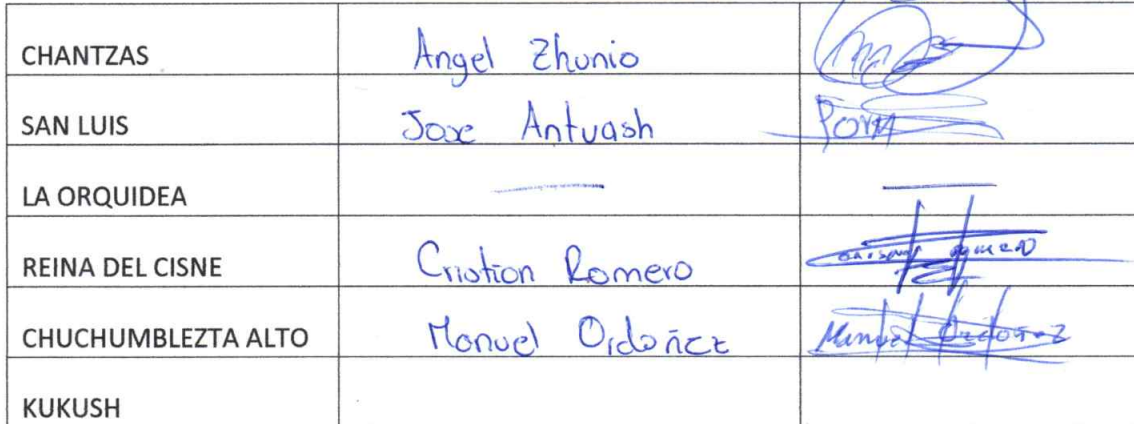 CHANTZAS Angel Zhunio
SAN LUIS Jose Antuash
LA ORQUIDEA —— ——
REINA DEL CISNE Cristian Romero
CHUCHUMBLEZTA ALTO Manuel Ordoñez Manuel Ordoñez
KUKUSH